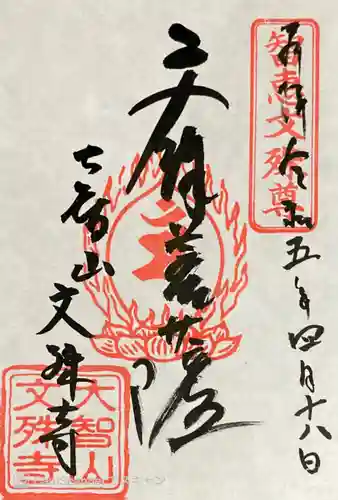 奉拝 令和五年四月十八日
智恵文殊尊
文殊菩薩
大智山 文殊寺
大智山
文殊寺